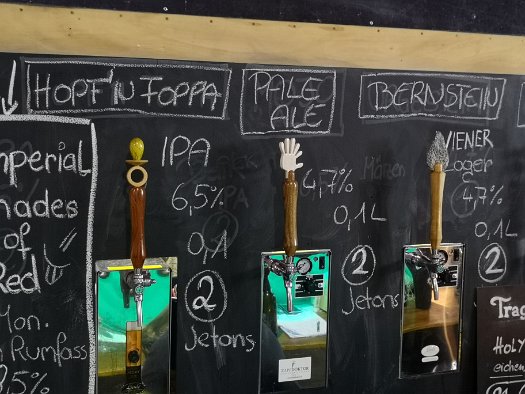 HOPF'N FOPPA
IPA
6,5%
0,1
2
Jetons
PALE
ALE
4,7%
0,1L
2
Jetons
BERNSTEIN
WIENER
Lager
4,7%
0,1L
2
mperial
hades
of
Red
Mon.
Rumfass
,5%
ZAPFDOKTOR
Trag
HOLY
eichen